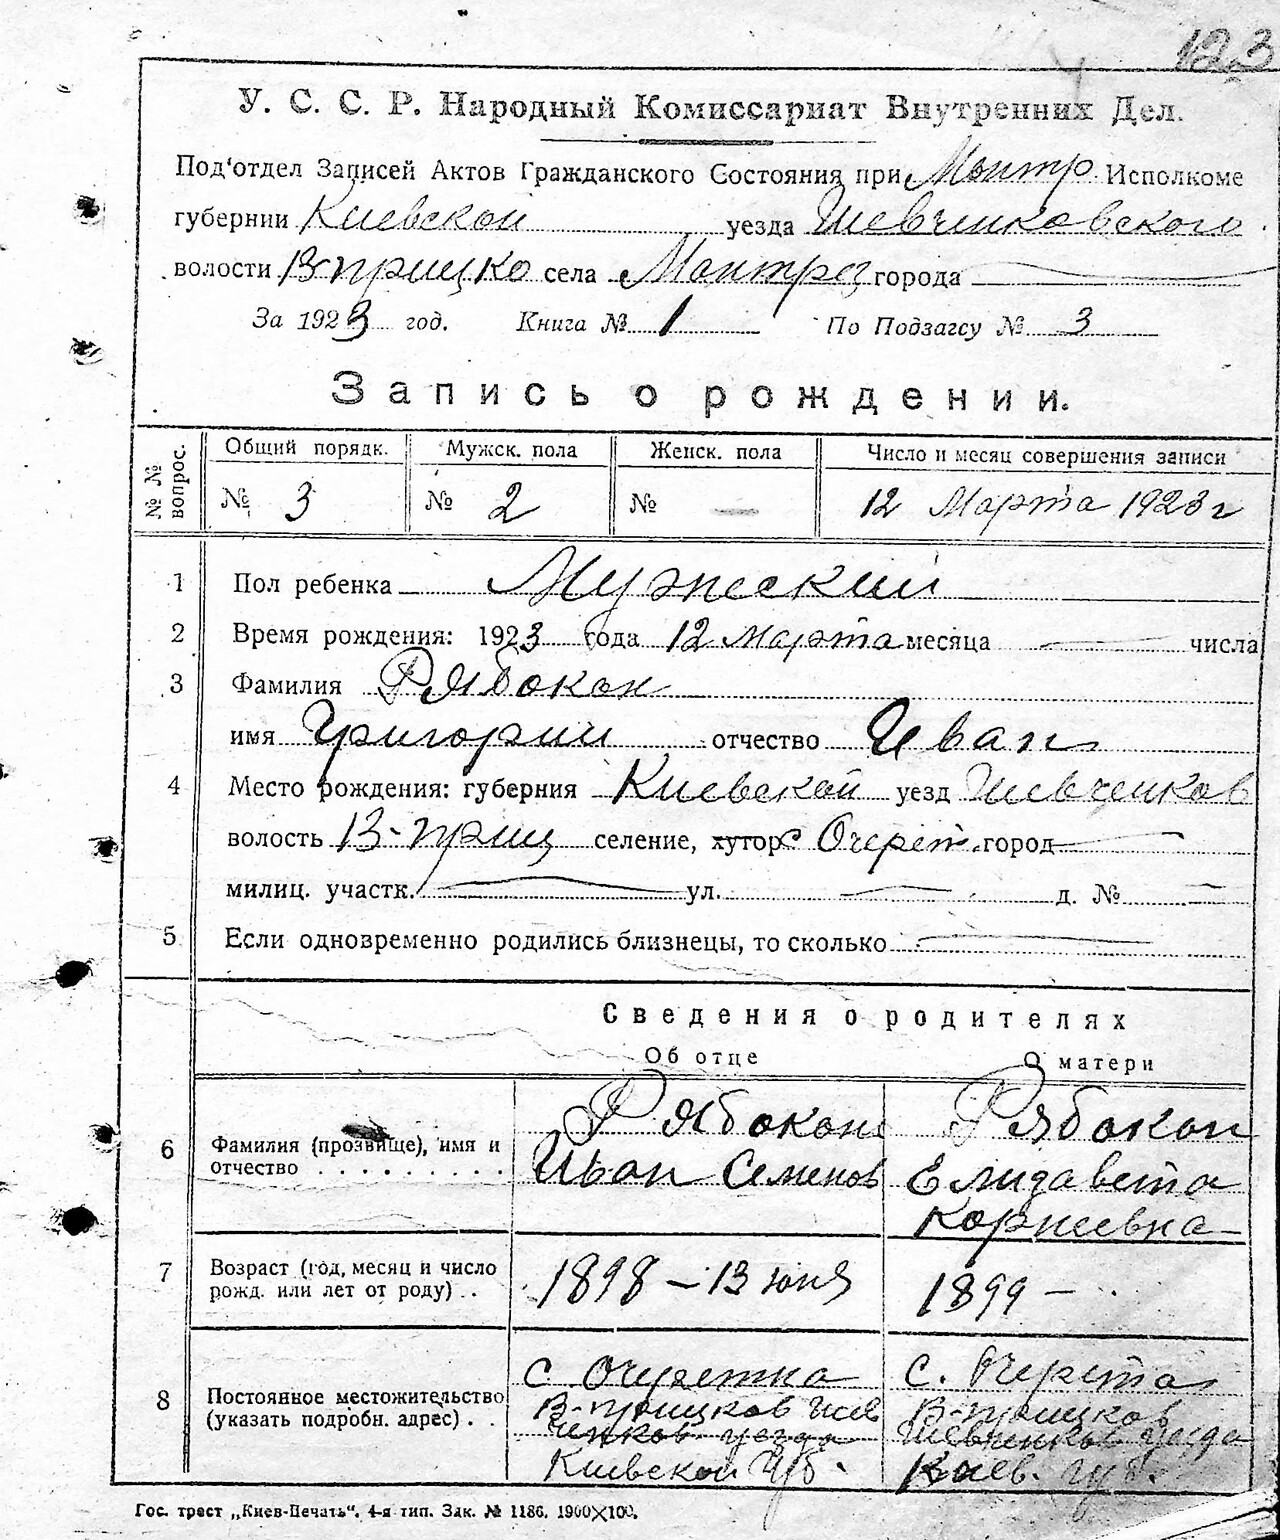 123
У. С. С. Р. Народный Комиссариат Внутренних Дел.
Под'отдел Записей Актов Гражданского Состояния при Монтр. Исполкоме
губернии Киевской уезда Шевченковского
волости В-прицко села Монтрез города
За 1923 год. Книга № 1 По Подзагсу № 3
Запись о рождении.
№№ вопрос. Общий порядк. Мужск. пола Женск. пола Число и месяц совершения записи
№ 3 № 2 № — 12 Марта 1923 г
1 Пол ребенка Мужеский
2 Время рождения: 1923 года 12 марта месяца — числа
3 Фамилия Рябокон
имя Григорий отчество Иван
4 Место рождения: губерния Киевской уезд Шевченков
волость В-приц селение, хутор с Очерет. город —
милиц. участк. — ул. — д. № —
5 Если одновременно родились близнецы, то сколько —
Сведения о родителях
Об отце О матери
6 Фамилия (прозвище), имя и отчество . . . . . . . . .
Рябокон
Иван Семенов
Рябокон
Елизавета
Корнеевна
7 Возраст (год, месяц и число рожд. или лет от роду) . .
1898 – 13 юня
1899 –
8 Постоянное местожительство (указать подробн. адрес) . .
с Очеретна
В-прицков Шев
ченков уезда
Киевской губ.
с. Очерета
В-прицков
Шевченков уезда
Киев. губ.
Гос. трест „Киев-Печать“. 4-я тип. Зак. № 1186. 1900×100.